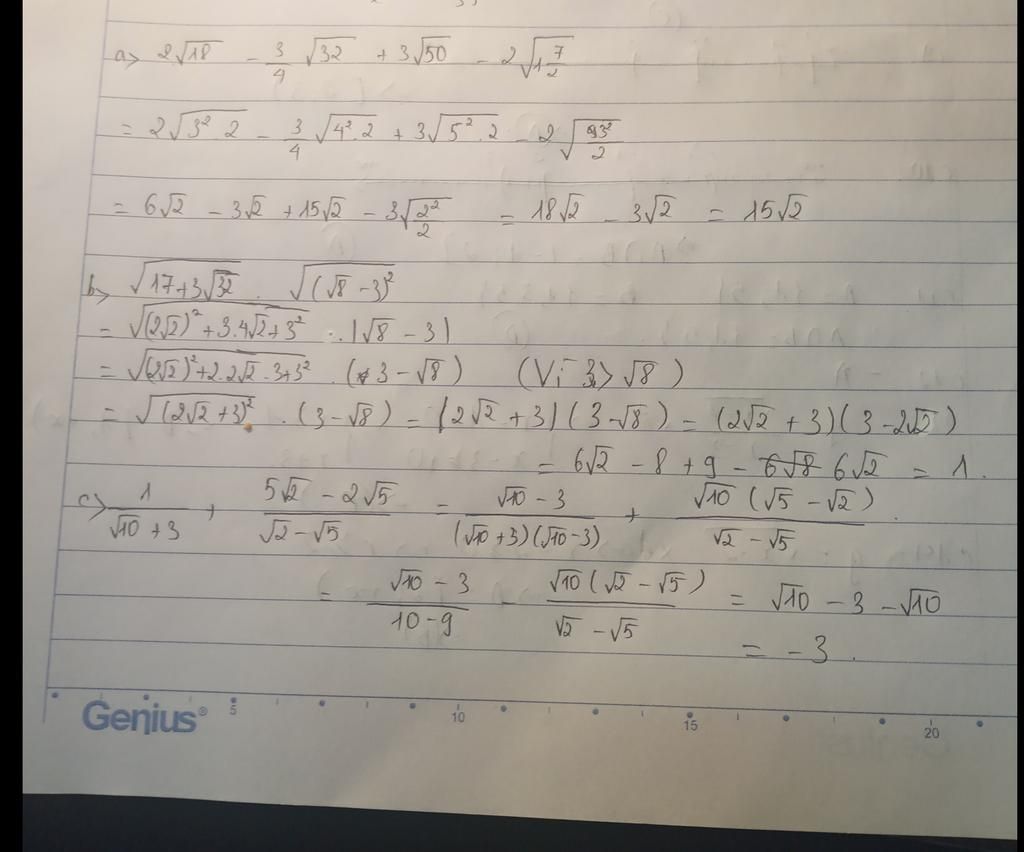 a> 2√18 - 3/4 √32 + 3√50 - 2√(1 7/2)
= 2√(3² 2) - 3/4 √(4². 2) + 3√(5². 2) - 2√(/2)
= 6√2 - 3√2 + 15√2 - 3√(2²/2) = 18√2 - 3√2 = 15√2
b> √(17+3√32) . √((√8 - 3)²)
= √((2√2)² + 3.4√2 + 3²) . |√8 - 3|
= √((2√2)² + 2.2√2 .3 + 3²) . (3 - √8) (Vì 3 > √8)
= √((2√2 + 3)²) . (3 - √8) = |2√2 + 3| (3 - √8) = (2√2 + 3)(3 - 2√2)
= 6√2 - 8 + 9 - 6√8 6√2 = 1.
c> 1/(√10 + 3) + (5√2 - 2√5)/(√2 - √5) = (√10 - 3)/((√10+3)(√10-3)) + (√10 (√5 - √2))/(√2 - √5).
= (√10 - 3)/(10 - 9) - (√10(√2 - √5))/(√2 - √5) = √10 - 3 - √10
= -3.
Genius® 5 10 15 20